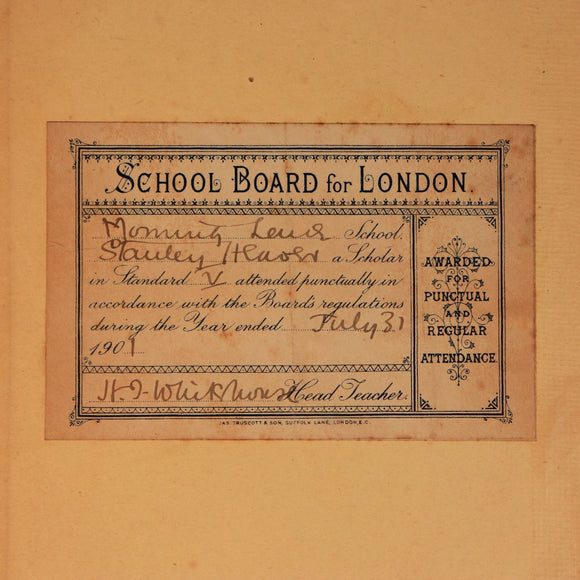 SCHOOL BOARD for LONDON.
Morning Lane School.
Stanley Heaver a Scholar
in Standard V attended punctually in
accordance with the Board's regulations
during the Year ended July 31
1901
H. J. Whitehouse Head Teacher.
AWARDED
FOR
PUNCTUAL
AND
REGULAR
ATTENDANCE.
JAS TRUSCOTT & SON, SUFFOLK LANE, LONDON, E.C.